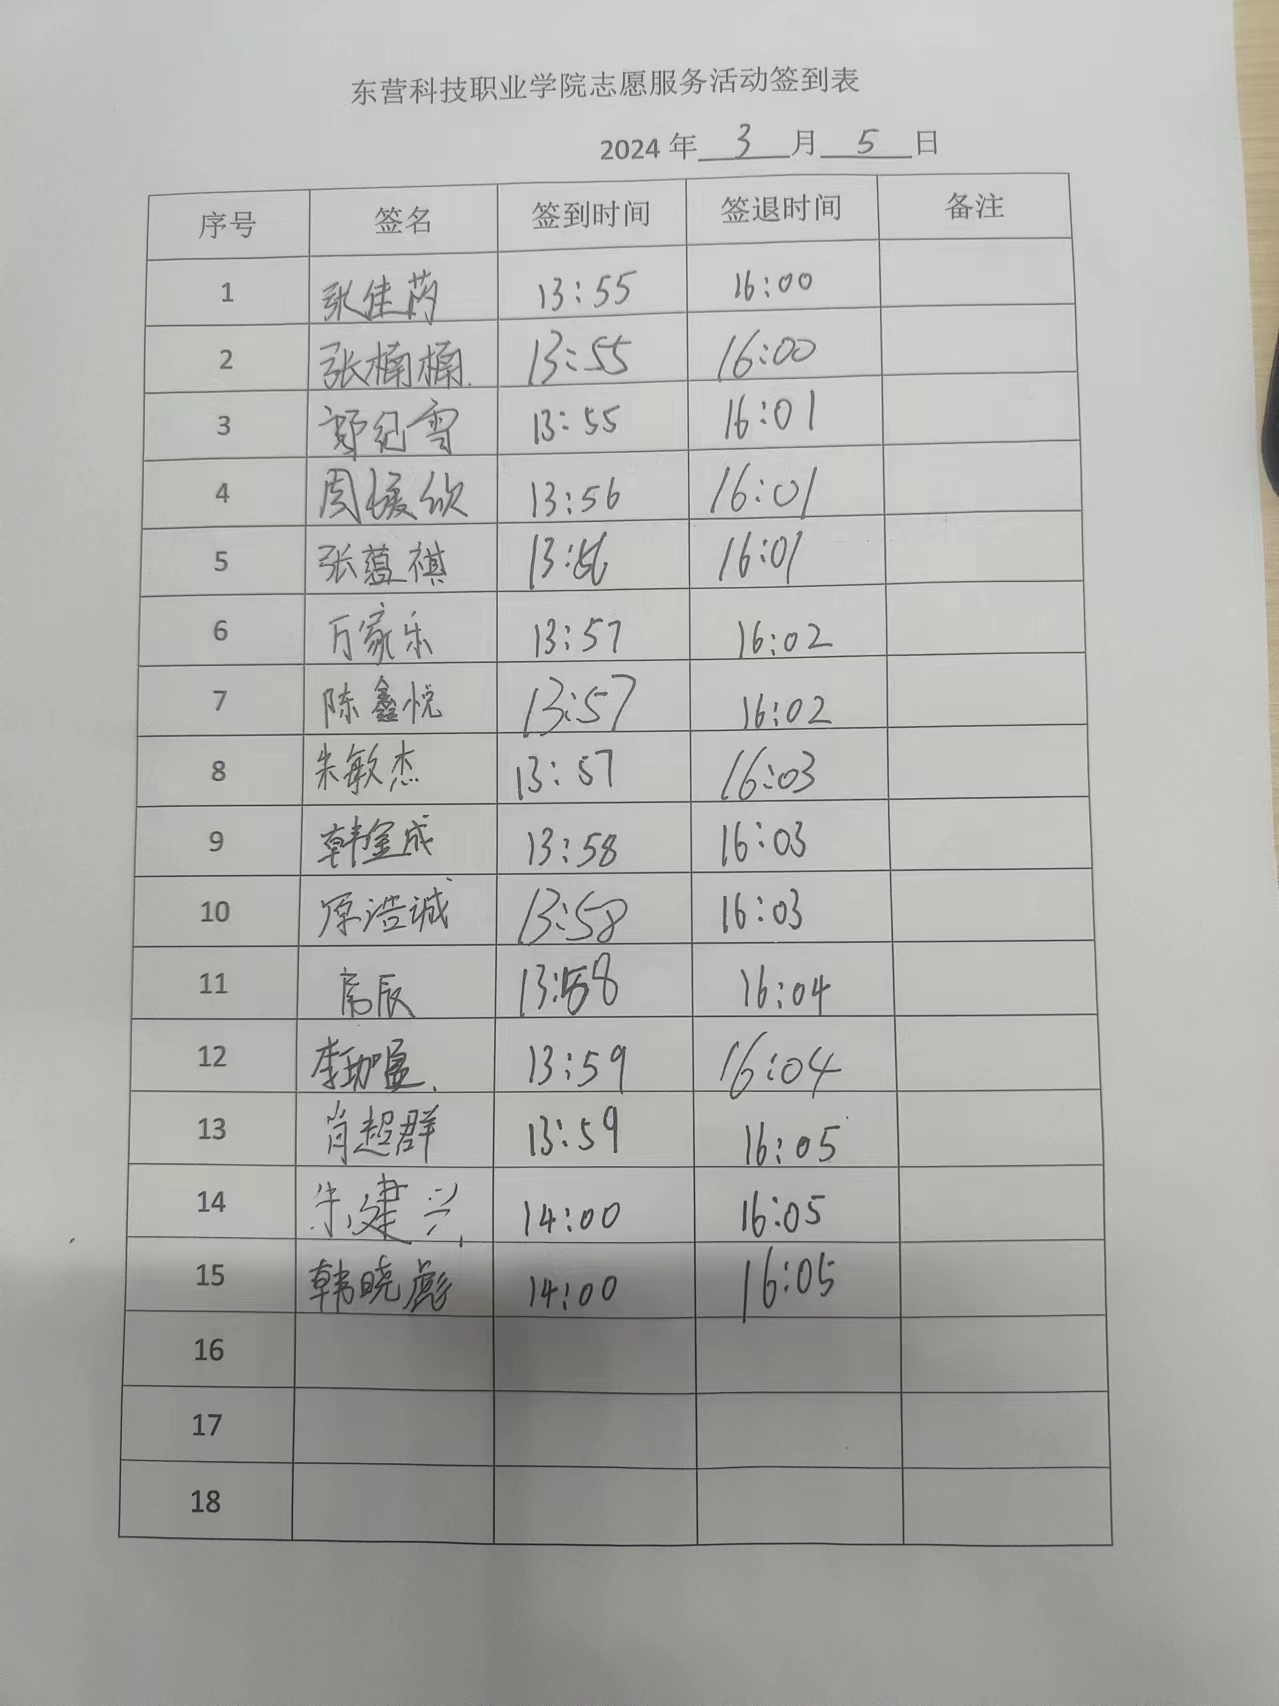 东营科技职业学院志愿服务活动签到表
2024 年 3 月 5 日
序号 签名 签到时间 签退时间 备注
1 张佳芮 13:55 16:00
2 张楠楠. 13:55 16:00
3 郭纪雪 13:55 16:01
4 周媛欣 13:56 16:01
5 张蕴祺 13:56 16:01
6 万家乐 13:57 16:02
7 陈鑫悦 13:57 16:02
8 朱敏杰 13:57 16:03
9 韩金成 13:58 16:03
10 原浩诚 13:58 16:03
11 13:58 16:04
12 13:59 16:04
13 肖超群 13:59 16:05
14 朱建兴 14:00 16:05
15 韩晓彪 14:00 16:05
16
17
18